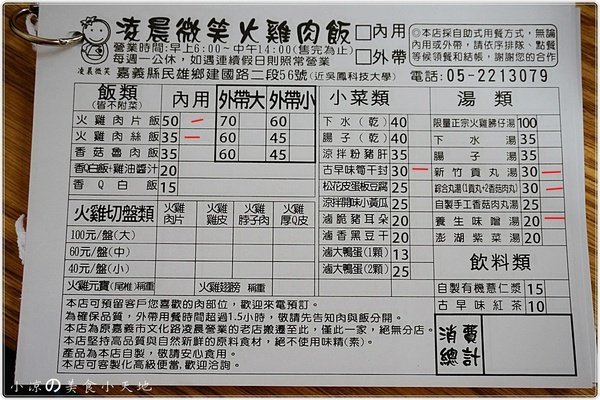 凌晨微笑火雞肉飯
□內用
□外帶
營業時間:早上6:00~中午14:00(售完為止)
每週一公休,如遇連續假日則照常營業
嘉義縣民雄鄉建國路二段56號(近吳鳳科技大學)
凌晨微笑
◎本店採自助式用餐方式,無論
內用或外帶,請依序排隊、點餐
等候領餐和結帳,謝謝您的合作
電話:05-2213079
飯類
(皆不附菜)
內用 外帶大 外帶小
火雞肉片飯 50 70 60
火雞肉絲飯 35 60 45
香菇魯肉飯 35 60 45
香Q白飯+雞油醬汁 20
香Q白飯 15
火雞切盤類 火雞肉片 火雞雞皮 火雞脖子肉 火雞厚Q皮
100元/盤(大)
60元/盤(中)
40元/盤(小)
火雞元寶(尾椎)稱重 火雞翅膀 稱重
小菜類
下水(乾) 40
腸子(乾) 40
涼拌粉豬肝 35
古早味筍干封 30
松花皮蛋板豆腐 25
涼拌開味小黃瓜 25
滷脆豬耳朵 20
滷香黑豆干 20
滷大鴨蛋(1顆) 13
滷大鴨蛋(2顆) 25
湯類
限量正宗火雞髒仔湯 100
下水湯 35
腸子湯 35
新竹貢丸湯 30
綜合丸湯(1貢丸+2香菇肉丸) 30
自製手工香菇肉丸湯 25
養生味噌湯 20
澎湖紫菜湯 20
飲料類
自製有機薏仁漿 15
古早味紅茶 10
消費
總計
本店可預留客戶您喜歡的肉部位,歡迎來電預訂。
為確保品質,外帶用餐時間超過1.5小時,敬請先告知肉與飯分開。
本店為原嘉義市文化路凌晨營業的老店搬遷至此,僅此一家,絕無分店。
本店堅持高品質與自然新鮮的原料食材,絕不使用味精(素)。
產品為本店自製,敬請安心食用。
本店可客製化高級便當,歡迎洽詢。
小涼の美食小天地